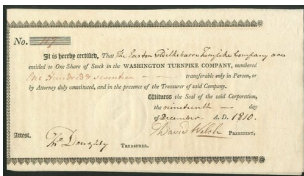 No. 117
It is hereby certified, That the Easton & Wilkesbarre Turnpike Company are
entitled to One Share of Stock in the WASHINGTON TURNPIKE COMPANY, numbered
One Hundred & seventeen transferable only in Person, or
by Attorney duly constituted, and in the presence of the Treasurer of said Company.
Witness the Seal of the said Corporation,
the nineteenth day
of December A.D. 1810.
David Welsh PRESIDENT,
Attest.
TREASURER.